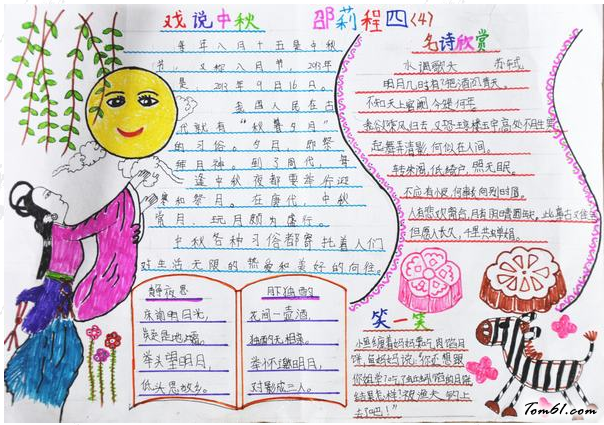 戏说中秋 邵莉程四〈4〉
每年八月十五是中秋
节，又称八月节，2013年
是 2013年9月16日。
我国人民在古
代就有“秋暮夕月”
的习俗。夕月，即祭
拜月神。到了周代，每
逢中秋夜都要举行迎
寒和祭月。在唐代，中秋
赏月、玩月颇为盛行。
中秋各种习俗都寄托着人们
对生活无限的热爱和美好的向往。
静夜思
床前明月光，
疑是地上霜。
举头望明月，
低头思故乡。
月下独酌
花间一壶酒，
独酌无相亲。
举杯邀明月，
对影成三人。
名诗欣赏
水调歌头 苏轼
明月几时有？把酒问青天。
不知天上宫阙，今夕何年。
我欲乘风归去，又恐琼楼玉宇，高处不胜寒。
起舞弄清影，何似在人间。
转朱阁，低绮户，照无眠。
不应有恨，何事长向别时圆。
人有悲欢离合，月有阴晴圆缺，此事古难全
但愿人长久，千里共婵娟。
笑一笑
小鱼缠着妈妈要吃肉馅月
饼，鱼妈妈说：你
吃了
的月饼，
结果怎样？被渔夫钓上
去了吧！”
Tom61.com